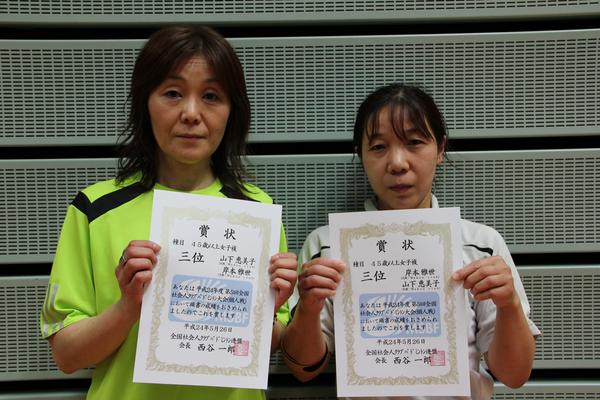 賞状
種目 45歳以上女子複
三位 山下 恵美子
岸本 雅世
あなたは平成24年度 第5回全国
社会人クラブバドミントン大会(個人戦)
において頭書の成績をおさめられ
ましたのでこれを賞します
平成24年5月26日
全国社会人クラブバドミントン連盟
会長 西谷 一郎
賞状
種目 45歳以上女子複
三位 岸本 雅世
山下 恵美子
あなたは平成24年度 第5回全国
社会人クラブバドミントン大会(個人戦)
において頭書の成績をおさめられ
ましたのでこれを賞します
平成24年5月26日
全国社会人クラブバドミントン連盟
会長 西谷 一郎